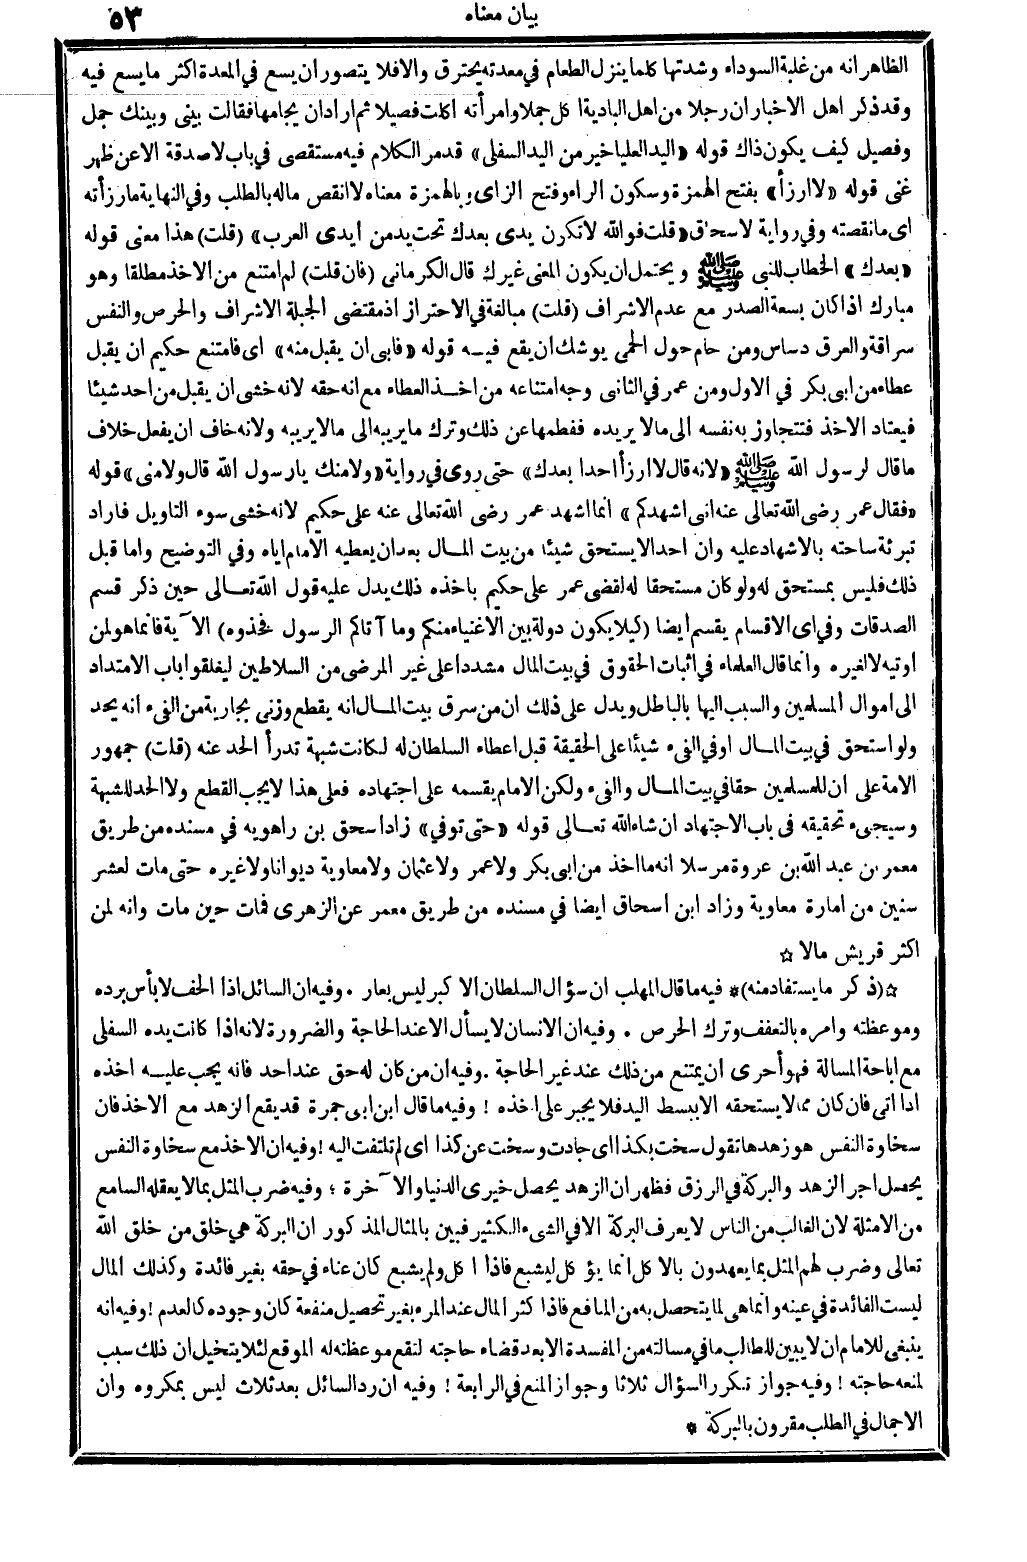 بيان معناه
٥٣
الظاهر انه من غلبة السوداء وشدتها كلما ينزل الطعام في معدته يحترق والافلا يتصور ان يسع في المعدة اكثر ما يسع فيه
وقد ذكر اهل الاخبار ان رجلا من اهل البادية اكل جملا وامرأته اكلت فصيلا ثم اراد ان يجامعها فقالت بيني وبينك جمل
وفصيل كيف يكون ذاك قوله «اليد العليا خير من اليد السفلى» قد مر الكلام فيه مستقصى في باب لا صدقة الا عن ظهر
غنى قوله «لا ارزأ» بفتح الهمزة وسكون الراء وفتح الزاى وبالهمزة معناه لا انقص ماله بالطلب وفي النهاية ما رزأته
اى ما نقصته وفي رواية لاسحاق «قلت فوالله لا تكون يدى بعدك تحت يد من أيدى العرب» (قلت) هذا معنى قوله
«بعدك» الخطاب للنبى ﷺ ويحتمل ان يكون المعنى غيرك قال الكرمانى (فان قلت) لم امتنع من الاخذ مطلقا وهو
مبارك اذا كان بسعة الصدر مع عدم الاشراف (قلت) مبالغة في الاحتراز اذ مقتضى الجبلة الاشراف والحرص والنفس
سراقة والعرق دساس ومن حام حول الحمى يوشك ان يقع فيه قوله «فابى ان يقبل منه» اى فامتنع حكيم ان يقبل
عطاء من ابى بكر في الاول ومن عمر في الثانى وجه امتناعه من اخذ العطاء مع انه حقه لانه خشى ان يقبل من احد شيئا
فيعتاد الاخذ فتتجاوز به نفسه الى مالا يريده ففطمها عن ذلك وترك ما يريبه الى مالا يريبه ولانه خاف ان يفعل خلاف
ما قال لرسول الله ﷺ «لانه قال لا ارزأ احدا بعدك» حتى روى في رواية «ولا منك يارسول الله قال ولا منى» قوله
«فقال عمر رضى الله تعالى عنه انى اشهدكم» انما اشهد عمر رضى الله تعالى عنه على حكيم لانه خشى سوء التاويل فاراد
تبرئة ساحته بالاشهاد عليه وان احدا لا يستحق شيئا من بيت المال بعد ان يعطيه الامام اياه وفي التوضيح واما قبل
ذلك فليس بمستحق له ولو كان مستحقا له لقضى عمر على حكيم باخذه ذلك يدل عليه قول الله تعالى حين ذكر قسم
الصدقات وفي اى الاقسام يقسم أيضا (كيلا يكون دولة بين الاغنياء منكم وما آتاكم الرسول فخذوه) الآية فانما هو لمن
اوتيه لا لغيره وانما قال العلماء في اثبات الحقوق في بيت المال مشددا على غير المرضى من السلاطين ليغلقوا باب الامتداد
الى اموال المسلمين والسبب اليها بالباطل ويدل على ذلك ان من سرق بيت المال انه يقطع وزنى بجارية من الفىء انه يحد
ولو استحق في بيت المال اوفي الفىء شيئا على الحقيقة قبل اعطاء السلطان له لكانت شبهة تدرأ الحد عنه (قلت) جمهور
الامة على ان للمسلمين حقا في بيت المال والفىء ولكن الامام يقسمه على اجتهاده فعلى هذا لا يجب القطع ولا الحد للشبهة
وسيجىء تحقيقه فى باب الاجتهاد ان شاء الله تعالى قوله «حتى توفي» زاد اسحق بن راهويه في مسنده من طريق
معمر بن عبد الله بن عروة مرسلا انه ما اخذ من ابى بكر ولا عمر ولا عثمان ولا معاوية ديوانا ولا غيره حتى مات لعشر
سنين من امارة معاوية وزاد ابن اسحاق ايضا في مسنده من طريق معمر عن الزهرى فمات حين مات وانه لمن
اكثر قريش مالا ☆
☆(ذكر ما يستفاد منه)* فيه ما قال المهلب ان سؤال السلطان الاكبر ليس بعار . وفيه ان السائل اذا الحف لا بأس برده
وموعظته وامره بالتعفف وترك الحرص . وفيه ان الانسان لا يسأل الا عند الحاجة والضرورة لانه اذا كانت يده السفلى
مع اباحة المسالة فهو أحرى ان يمتنع من ذلك عند غير الحاجة . وفيه ان من كان له حق عند احد فانه يجب عليه اخذه
اذا اتى فان كان مما لا يستحقه الا ببسط اليد فلا يجبر على اخذه ! وفيه ما قال ابن ابى جمرة قد يقع الزهد مع الاخذ فان
سخاوة النفس هو زهدها تقول سخت بكذا اى جادت وسخت عن كذا اى لم تلتفت اليه ! وفيه ان الاخذ مع سخاوة النفس
يحصل اجر الزهد والبركة في الرزق فظهر ان الزهد يحصل خيرى الدنيا والآخرة ؛ وفيه ضرب المثل بما لا يعقله السامع
من الامثلة لان الغالب من الناس لا يعرف البركة الا في الشىء الكثير فبين بالمثال المذكور ان البركة هى خلق من خلق الله
تعالى وضرب لهم المثل بما يعهدون بالاكل انما يؤكل ليشبع فاذا اكل ولم يشبع كان عناء في حقه بغير فائدة وكذلك المال
ليست الفائدة في عينه وانما هى لما يتحصل به من المنافع فاذا كثر المال عند المرء بغير تحصيل منفعة كان وجوده كالعدم ! وفيه انه
ينبغى للامام ان لا يبين للطالب ما في مسالته من المفسدة الا بعد قضاء حاجته لتقع موعظته له الموقع لئلا يتخيل ان ذلك سبب
لمنعه حاجته ! وفيه جواز تكرر السؤال ثلاثا وجواز المنع في الرابعة ! وفيه ان رد السائل بعد ثلاث ليس بمكروه وان
الاجمال في الطلب مقرون بالبركة *